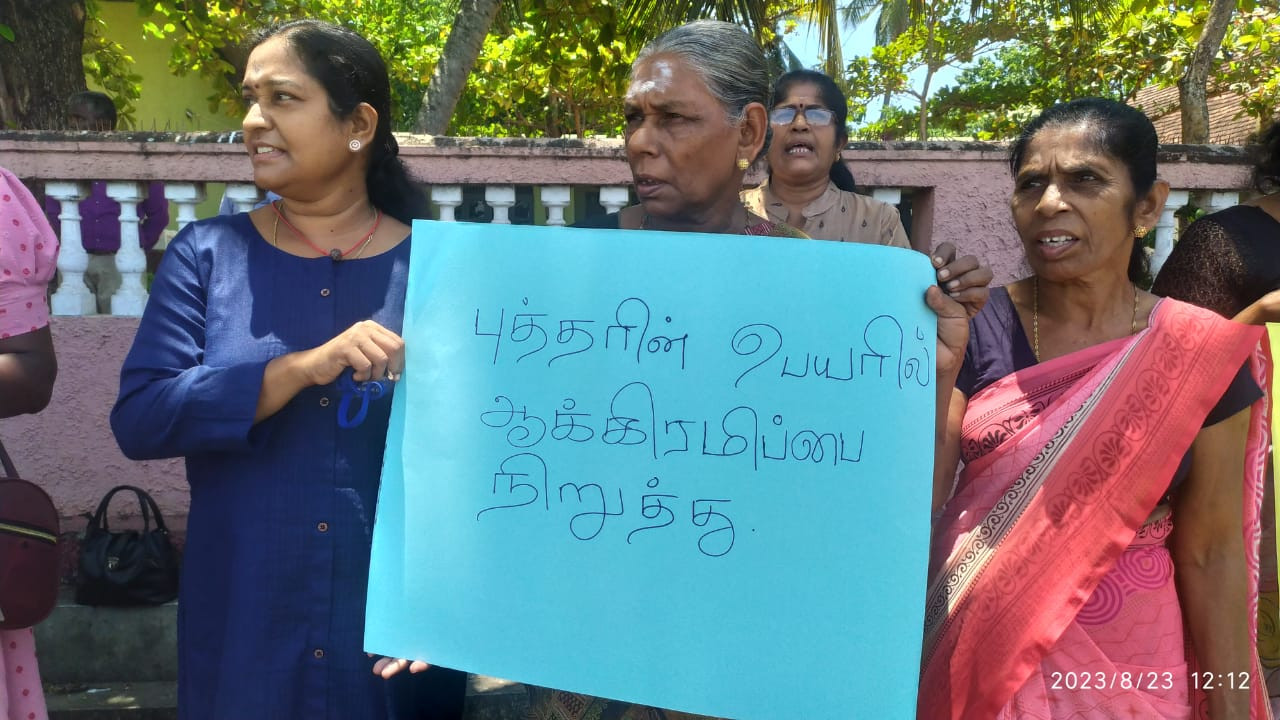 புத்தரின் பெயரில்
ஆக்கிரமிப்பை
நிறுத்து.
2023/8/23 12:12